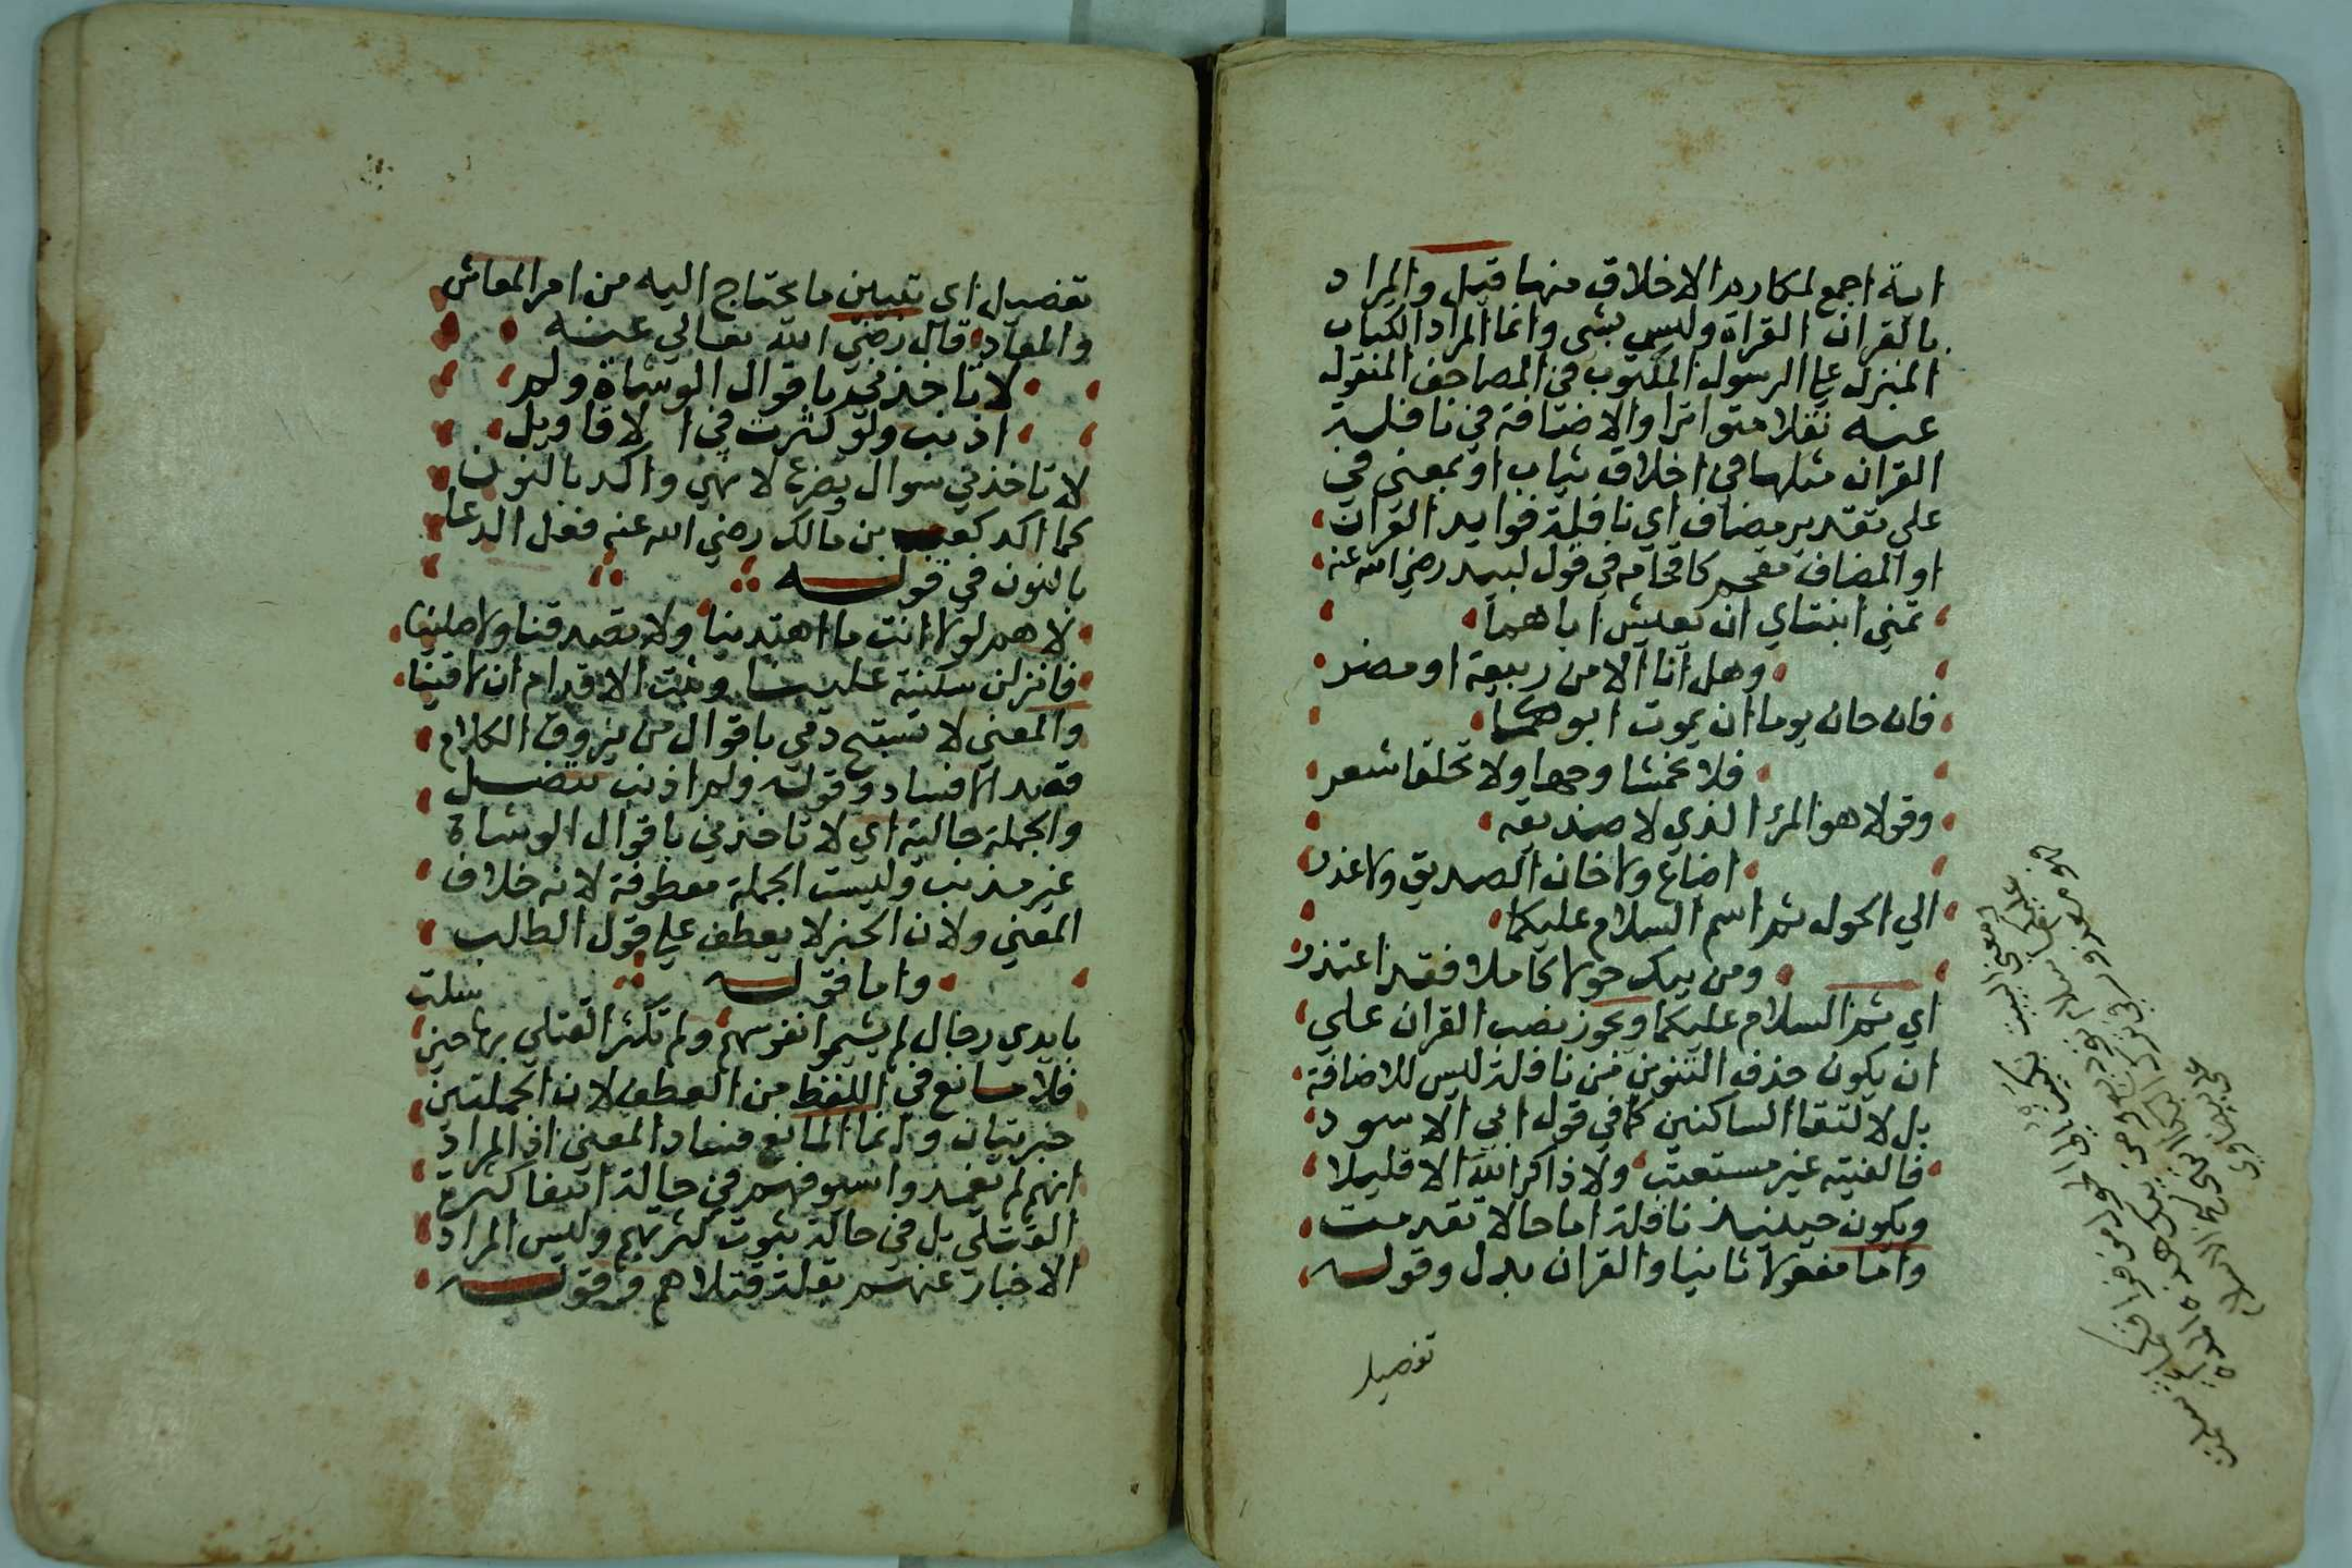 اية اجمع لمكارم الاخلاق منها قيل والمراد
بالقران القراة وليس بشي وانما المراد الكتاب
المنزل علي الرسول المكتوب في المصاحف المنقول
عنه نقلا متواترا والاضافة في نافلة
القران مثلها في اخلاق ثياب او بمعني في
علي تقدير مضاف اي نافلة فوايد القران
او المضاف مقحم كاقحامه في قول لبيد رضي الله عنه
تمني ابنتاي ان يعيش اباهما
وهل انا الا من ربيعة او مضر
فان حان يوما ان يموت ابوكما
فلا تخمشا وجها ولا تحلقا شعر
وقولا هو المرء الذي لا صديقه
اضاع ولا خان الصديق ولا غدر
الي الحول ثم اسم السلام عليكما
ومن يبك حولا كاملا فقد اعتذر
اي ثم السلام عليكما ويجوز نصب القران علي
ان يكون حذف التنوين من نافلة ليس للاضافة
بل لالتقا الساكنين كما في قول ابي الاسود
فالفيته غير مستعتب ولا ذاكر الله الا قليلا
ويكون حينيذ نافلة اما حالا تقدمت
واما مفعولا ثانيا والقران بدل وقوله
تفصيل
تفصيل اي تبيين ما يحتاج اليه من امر المعاش
والمعاد قال رضي الله تعالي عنه
لا تاخذني باقوال الوشاة ولم
اذنب ولو كثرت في الاقاويل
لا تاخذني سوال وتضرع لا نهي واكد بالنون
كما اكد كعب بن مالك رضي الله عنه فعل الدعا
بالنون في قوله
لاهم لولا انت ما اهتدينا ولا تصدقنا ولا صلينا
فانزلن سكينة علينا وثبت الاقدام ان لاقينا
والمعني لا تستبح دمي باقوال من يزوق الكلام
قصد الافساد وقوله ولم اذنب تنصل
والجملة حالية اي لا تاخذني باقوال الوشاة
غير مذنب وليست الجملة معطوفة لانه خلاف
المعني ولان الخبر لا يعطف علي قول الطالب
واما قوله
بايدي رجال لم يشيموا نفوسهم ولم تكثر القتلي بها حين سلت
فلا مانع في اللفظ من العطف لان الجملتين
خبريتان وانما المانع فساد المعني اذ المراد
انهم لم يغمدوا سيوفهم في حالة انتفا كثرة
القتلي بل في حالة ثبوت كثرتهم وليس المراد
الاخبار عنهم بقلة قتلاهم وقوله